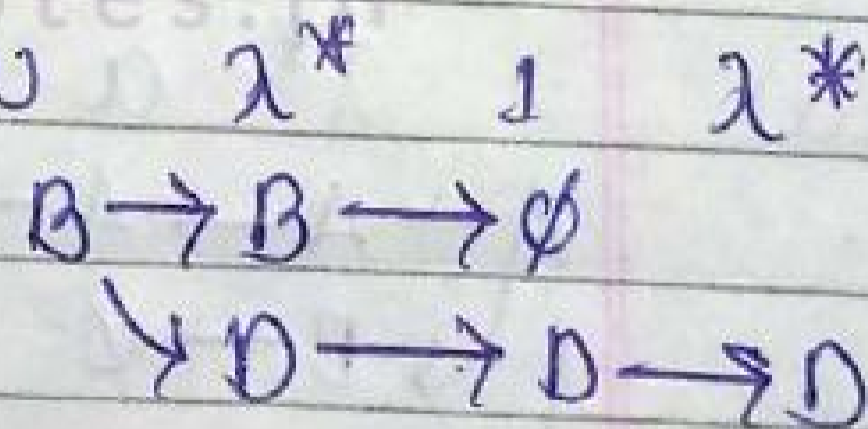 λ* 1 λ*
B → B → ϕ
↘ D → D → D